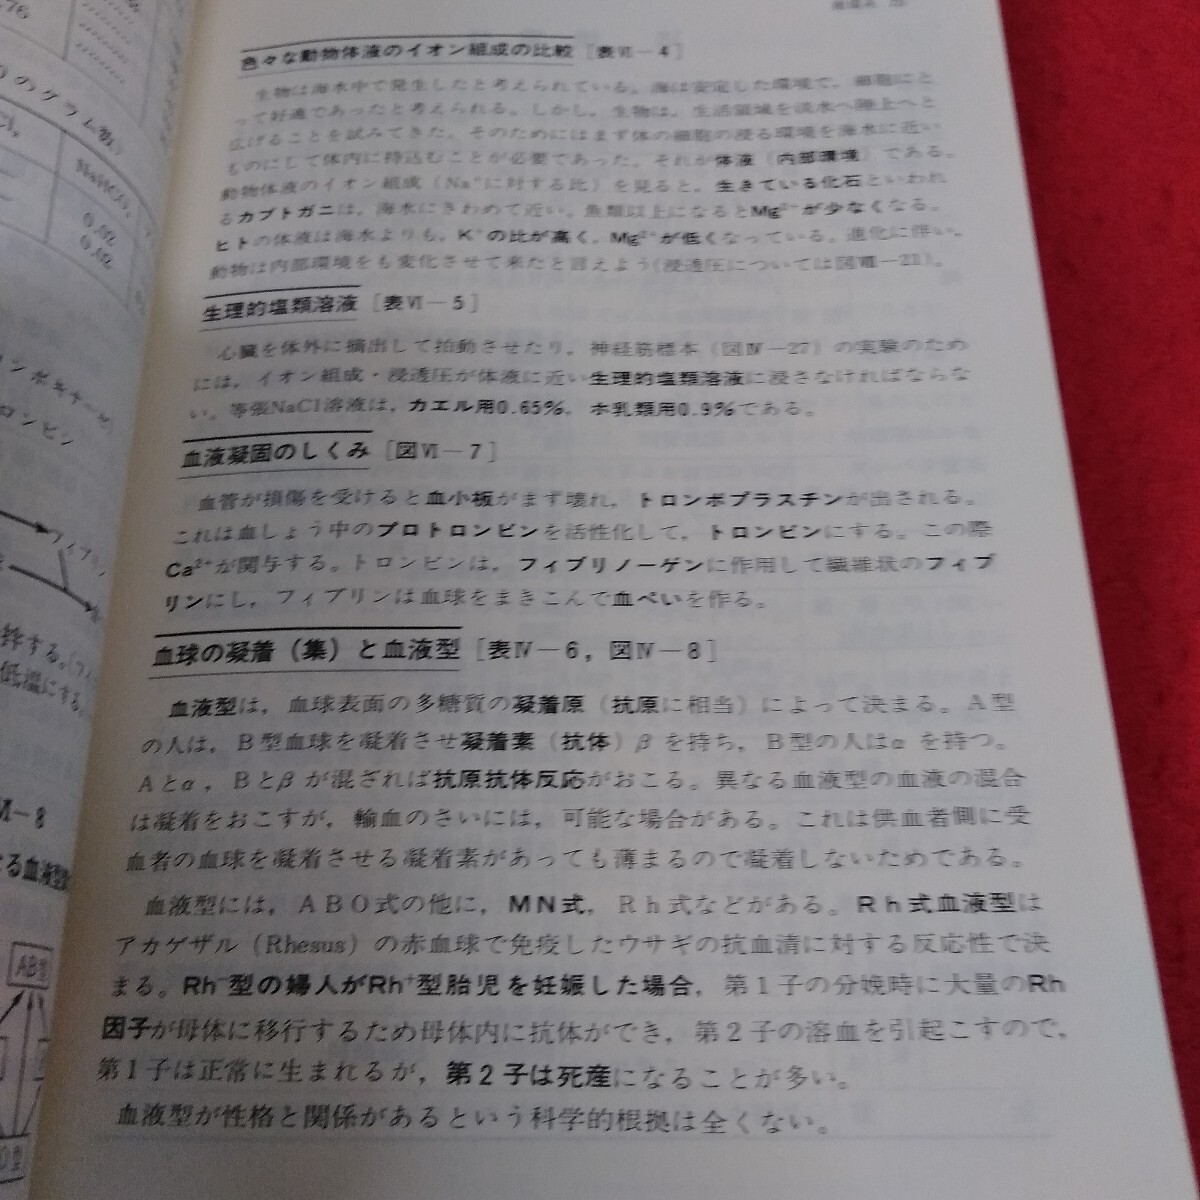 色々な動物体液のイオン組成の比較 [表Ⅵ－4]
生物は海水中で発生したと考えられている。海は安定した環境で，細胞にと
って好適であったと考えられる。しかし，生物は，生活領域を淡水へ陸上へと
広げることを試みてきた。そのためにはまず体の細胞の浸る環境を海水に近い
ものにして体内に持込むことが必要であった。それが体液（内部環境）である。
動物体液のイオン組成（Na⁺に対する比）を見ると，生きている化石といわれ
るカブトガニは，海水にきわめて近い。魚類以上になるとMg²⁺が少なくなる。
ヒトの体液は海水よりも，K⁺の比が高く，Mg²⁺が低くなっている。進化に伴い，
動物は内部環境をも変化させて来たと言えよう（浸透圧については図Ⅷ－21）。
生理的塩類溶液 [表Ⅵ－5]
心臓を体外に摘出して拍動させたり，神経筋標本（図Ⅳ－27）の実験のため
には，イオン組成・浸透圧が体液に近い生理的塩類溶液に浸さなければならな
い。等張NaCl溶液は，カエル用0.65%，ホ乳類用0.9%である。
血液凝固のしくみ [図Ⅵ－7]
血管が損傷を受けると血小板がまず壊れ，トロンボプラスチンが出される。
これは血しょう中のプロトロンビンを活性化して，トロンビンにする。この際
Ca²⁺が関与する。トロンビンは，フィブリノーゲンに作用して繊維状のフィブ
リンにし，フィブリンは血球をまきこんで血ぺいを作る。
血球の凝着（集）と血液型 [表Ⅳ－6，図Ⅳ－8]
血液型は，血球表面の多糖質の凝着原（抗原に相当）によって決まる。A型
の人は，B型血球を凝着させ凝着素（抗体）β を持ち，B型の人はα を持つ。
Aとα，Bとβ が混ざれば抗原抗体反応がおこる。異なる血液型の血液の混合
は凝着をおこすが，輸血のさいには，可能な場合がある。これは供血者側に受
血者の血球を凝着させる凝着素があっても薄まるので凝着しないためである。
血液型には，ABO式の他に，MN式，Rh式などがある。Rh式血液型は
アカゲザル（Rhesus）の赤血球で免疫したウサギの抗血清に対する反応性で決
まる。Rh⁻型の婦人がRh⁺型胎児を妊娠した場合，第1子の分娩時に大量のRh
因子が母体に移行するため母体内に抗体ができ，第2子の溶血を引起こすので，
第1子は正常に生まれるが，第2子は死産になることが多い。
血液型が性格と関係があるという科学的根拠は全くない。
76
のグラム数）
NaHCO₃
0.02
0.02
ロンビン
フィブリン
低温にする。
AB型